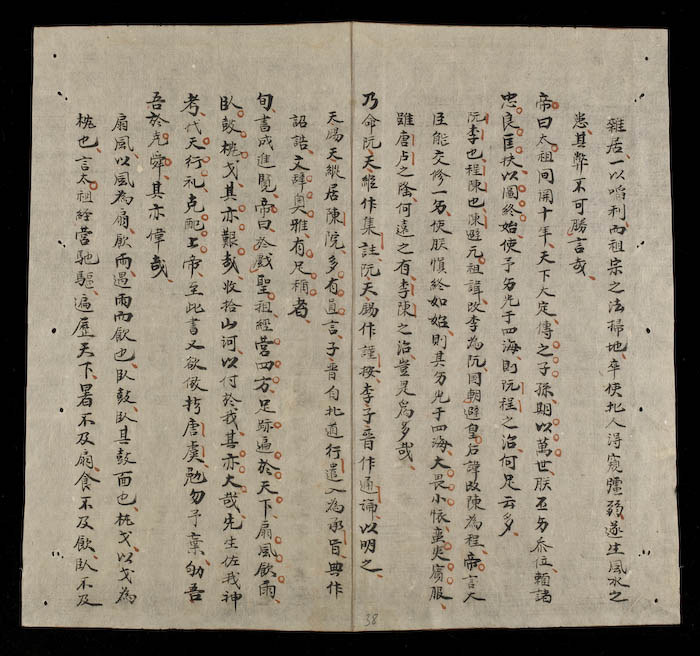 雜居一以啗利而祖宗之法掃地卒使北人得窺疆弱遂生風水之
患其弊不可勝言哉
帝曰太祖同開十年天下大定傳之子孫期以萬世朕丕忝位賴諸
忠良匡扶以圖終始使予光于四海則阮程之治何足云多
阮李也程陳也陳避元祖諱改李為阮国朝避皇后諱改陳為程帝言大
臣能交修一使朕慎終如始則其光于四海大畏小懷蠻夷賓服
雖唐卢之隆何遠之有李陳之治豈足為多哉
乃命阮天縱作集註阮天賜作謹按李子晉作通論以明之
天賜天縱居陳院多有直言子晉自北道行遣入為承旨典作
詔誥文辞奧雅有足稱者
旬書成進覽帝曰於戲聖祖經營四方足跡遍於天下扇風飲雨
臥鼓枕戈其亦艱哉收拾山河以付於我其亦大哉先生佐我神
考代天行礼克配上帝至此書又欲儆唐虞勉勿予棄幼吾
吾於尭舜其亦偉哉
扇風以風為扇飲雨遇雨而飲也臥鼓臥其鼓面也枕戈以戈為
枕也言太祖經營馳驅遍歷天下暑不及扇食不及飲臥不及
38